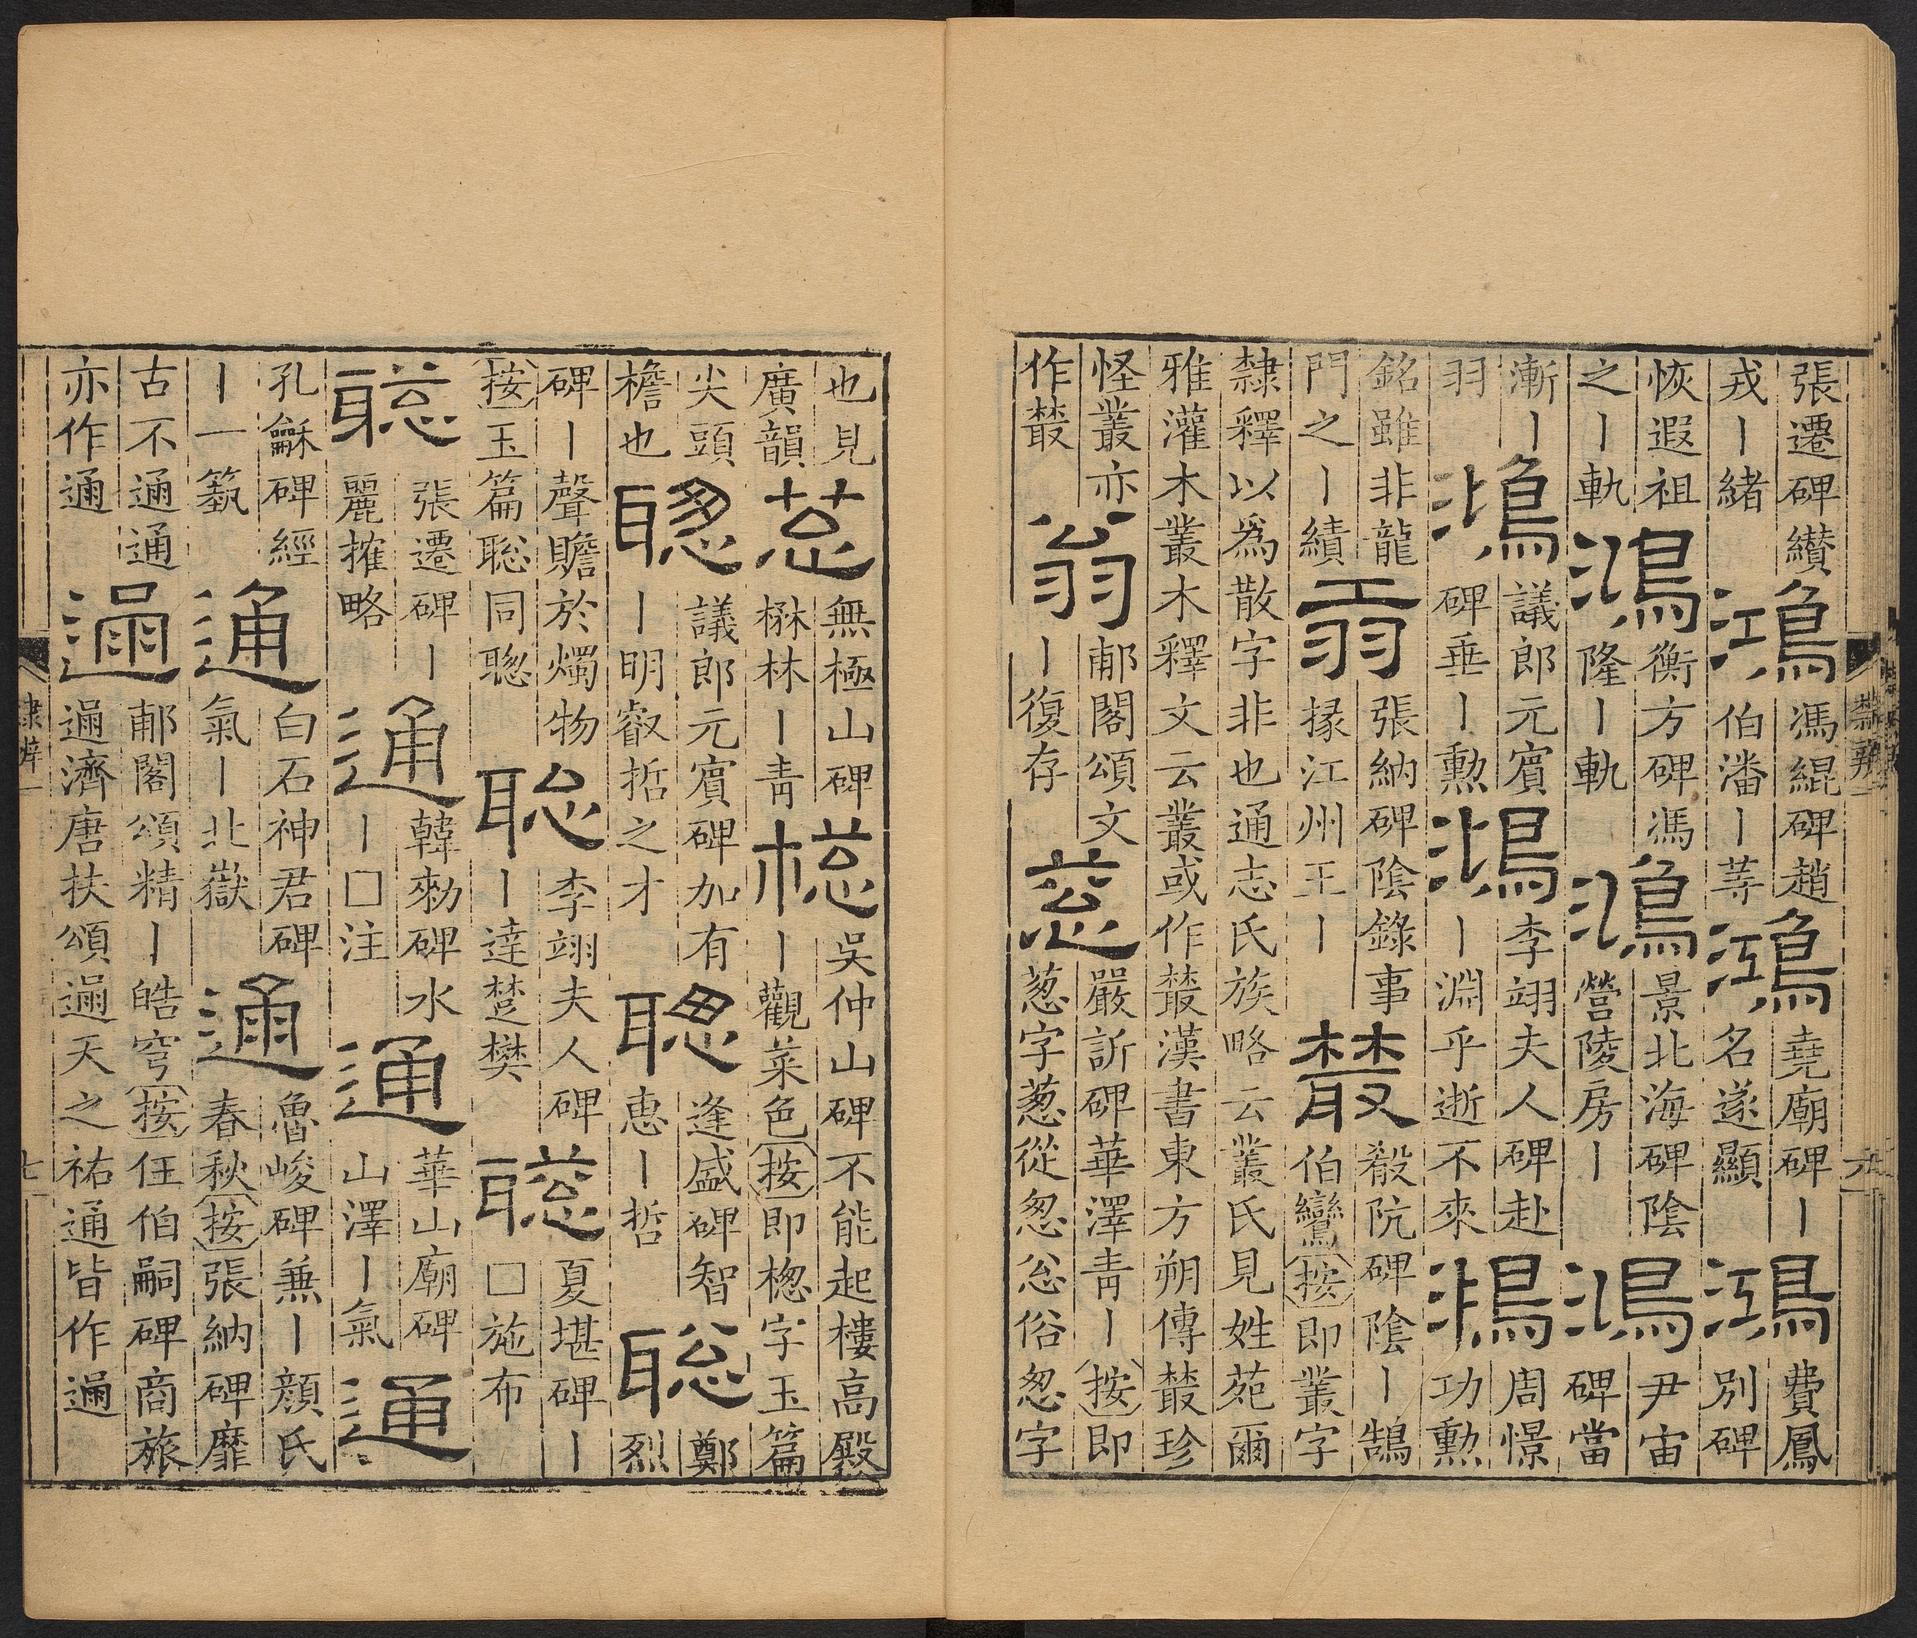 張遷碑纘
戎丨緒
鴻
馮緄碑趙
伯潘丨等
鴻
堯廟碑丨
名遂顯
鴻
費鳳
別碑
恢遐祖
之丨軌
鴻
衡方碑馮
隆丨軌
鴻
景北海碑陰
營陵房丨
鴻
尹宙
碑當
漸丨
羽
鴻
議郎元賓
碑垂丨勲
鴻
李翊夫人碑赴
丨淵乎逝不來
鴻
周憬
功勲
銘雖非龍
門之丨績
翁
張納碑陰錄事
掾江州王丨
藂
殽阬碑陰丨鵠
伯鸞按即叢字
隸釋以爲散字非也通志氏族略云叢氏見姓苑爾
雅灌木叢木釋文云叢或作藂漢書東方朔傳藂珍
怪叢亦
作藂
翁
郙閣頌文
丨復存
蔥
嚴訢碑華澤青丨按即
蔥字蔥從怱忩俗怱字
隸辨一
六
也見
廣韻
蔥
無極山碑
楙林丨青
樬
吳仲山碑不能起樓高殿
丨觀菜色按即樬字玉篇
尖頭
檐也
聰
議郎元賓碑加有
丨明叡哲之才
聰
逢盛碑智
惠丨哲
聰
鄭
烈
碑丨聲贍於燭物
按玉篇聡同聦
聡
李翊夫人碑
丨達楚樊
聦
夏堪碑丨
□施布
聦
張遷碑丨
麗搉略
通
韓勑碑水
丨□注
通
華山廟碑
山澤丨氣
通
孔龢碑經
丨一蓺
通
白石神君碑
氣丨北嶽
通
魯峻碑兼丨顏氏
春秋按張納碑靡
古不通通
亦作通
通
郙閣頌精丨皓穹按任伯嗣碑商旅
通濟唐扶頌通天之祐通皆作通
隸辨一
七